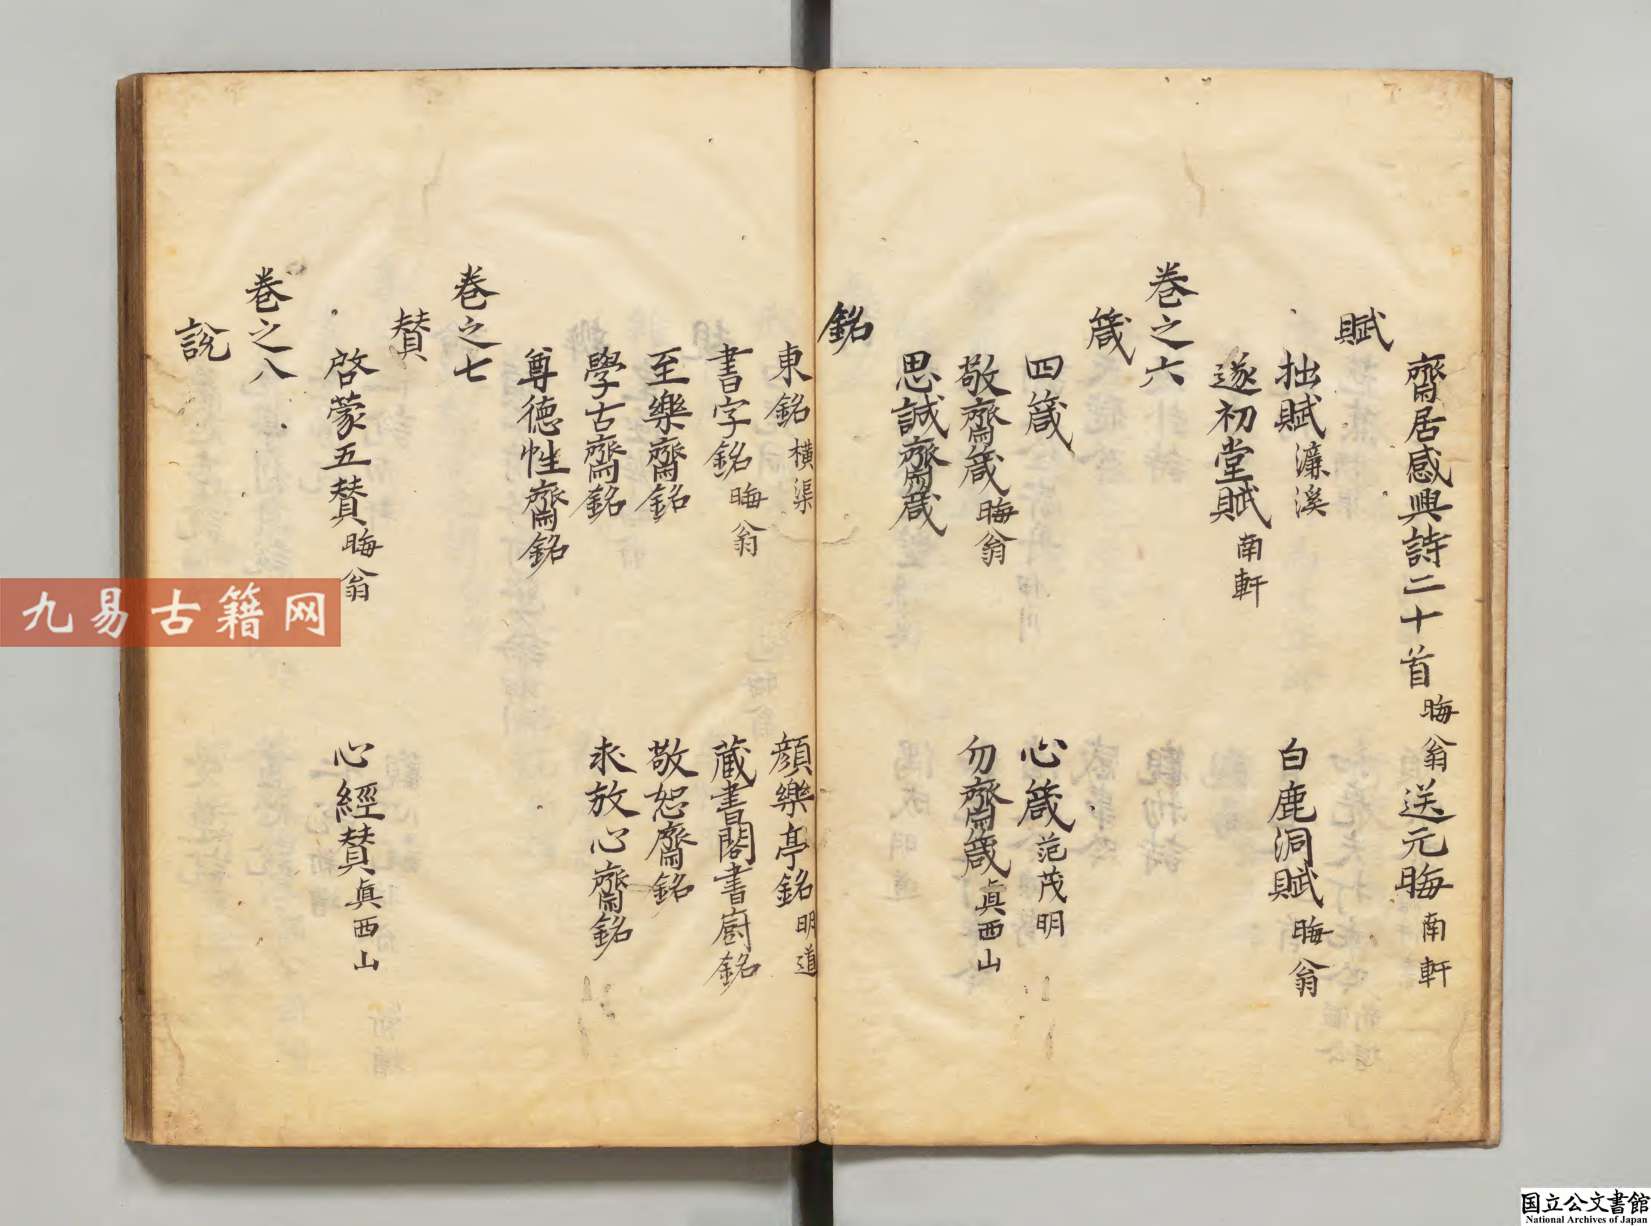 齋居感興詩二十首 晦翁 送元晦 南軒
賦
拙賦 濂溪 白鹿洞賦 晦翁
遂初堂賦 南軒
卷之六
箴
四箴 心箴 范茂明
敬齋箴 晦翁 勿齋箴 眞西山
思誠齋箴
銘
東銘 橫渠 顔樂亭銘 明道
書字銘 晦翁 藏書閣書廚銘
至樂齋銘 敬恕齋銘
學古齋銘 求放心齋銘
尊德性齋銘
卷之七
賛
啓蒙五賛 晦翁 心經賛 眞西山
卷之八
說
九易古籍网
国立公文書館
National Archives of Japan